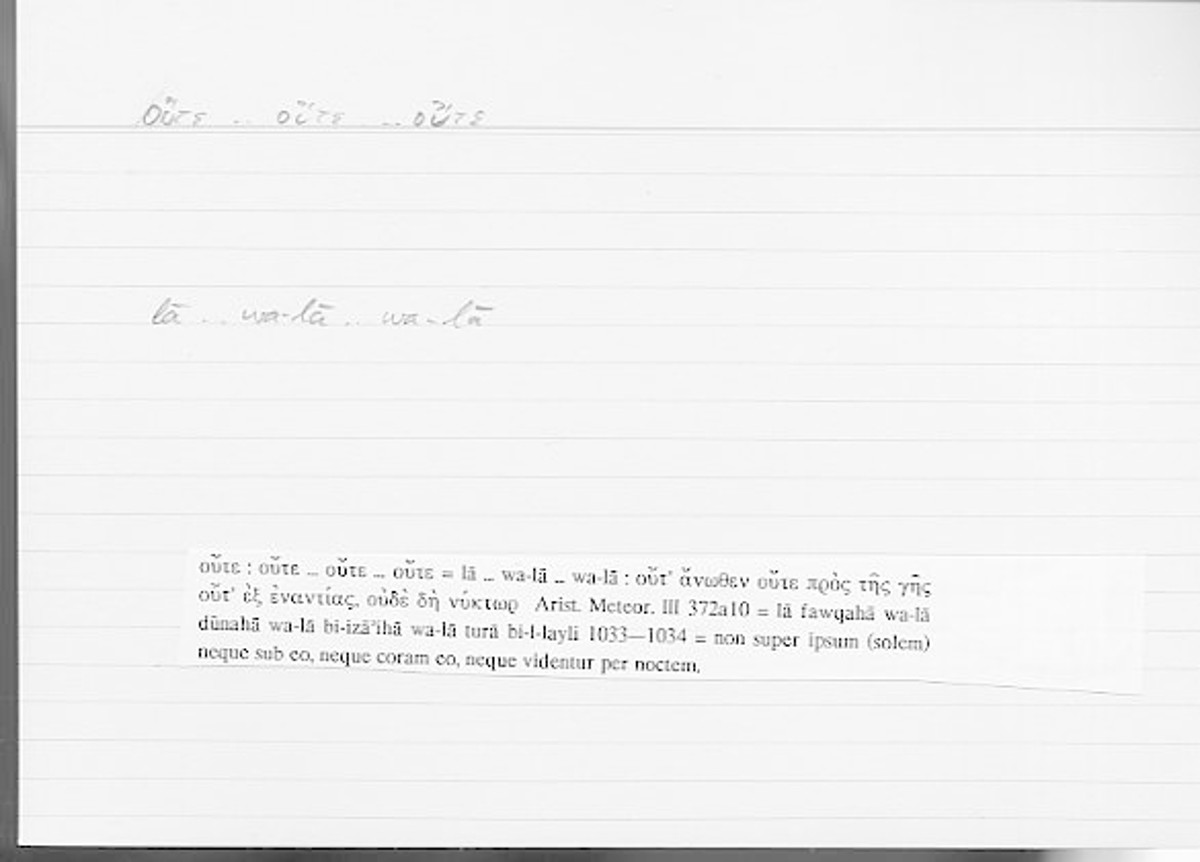 οὔτε .. οὔτε .. οὔτε
lā .. wa-lā .. wa-lā
οὔτε : οὔτε ... οὔτε ... οὔτε = lā ... wa-lā ... wa-lā : οὔτ' ἄνωθεν οὔτε πρὸς τῆς γῆς
οὔτ' ἐξ ἐναντίας, οὐδὲ δὴ νύκτωρ Arist. Meteor. III 372a10 = lā fawqahā wa-lā
dūnahā wa-lā bi-izāʾihā wa-lā turā bi-l-layli 1033—1034 = non super ipsum (solem)
neque sub eo, neque coram eo, neque videntur per noctem.